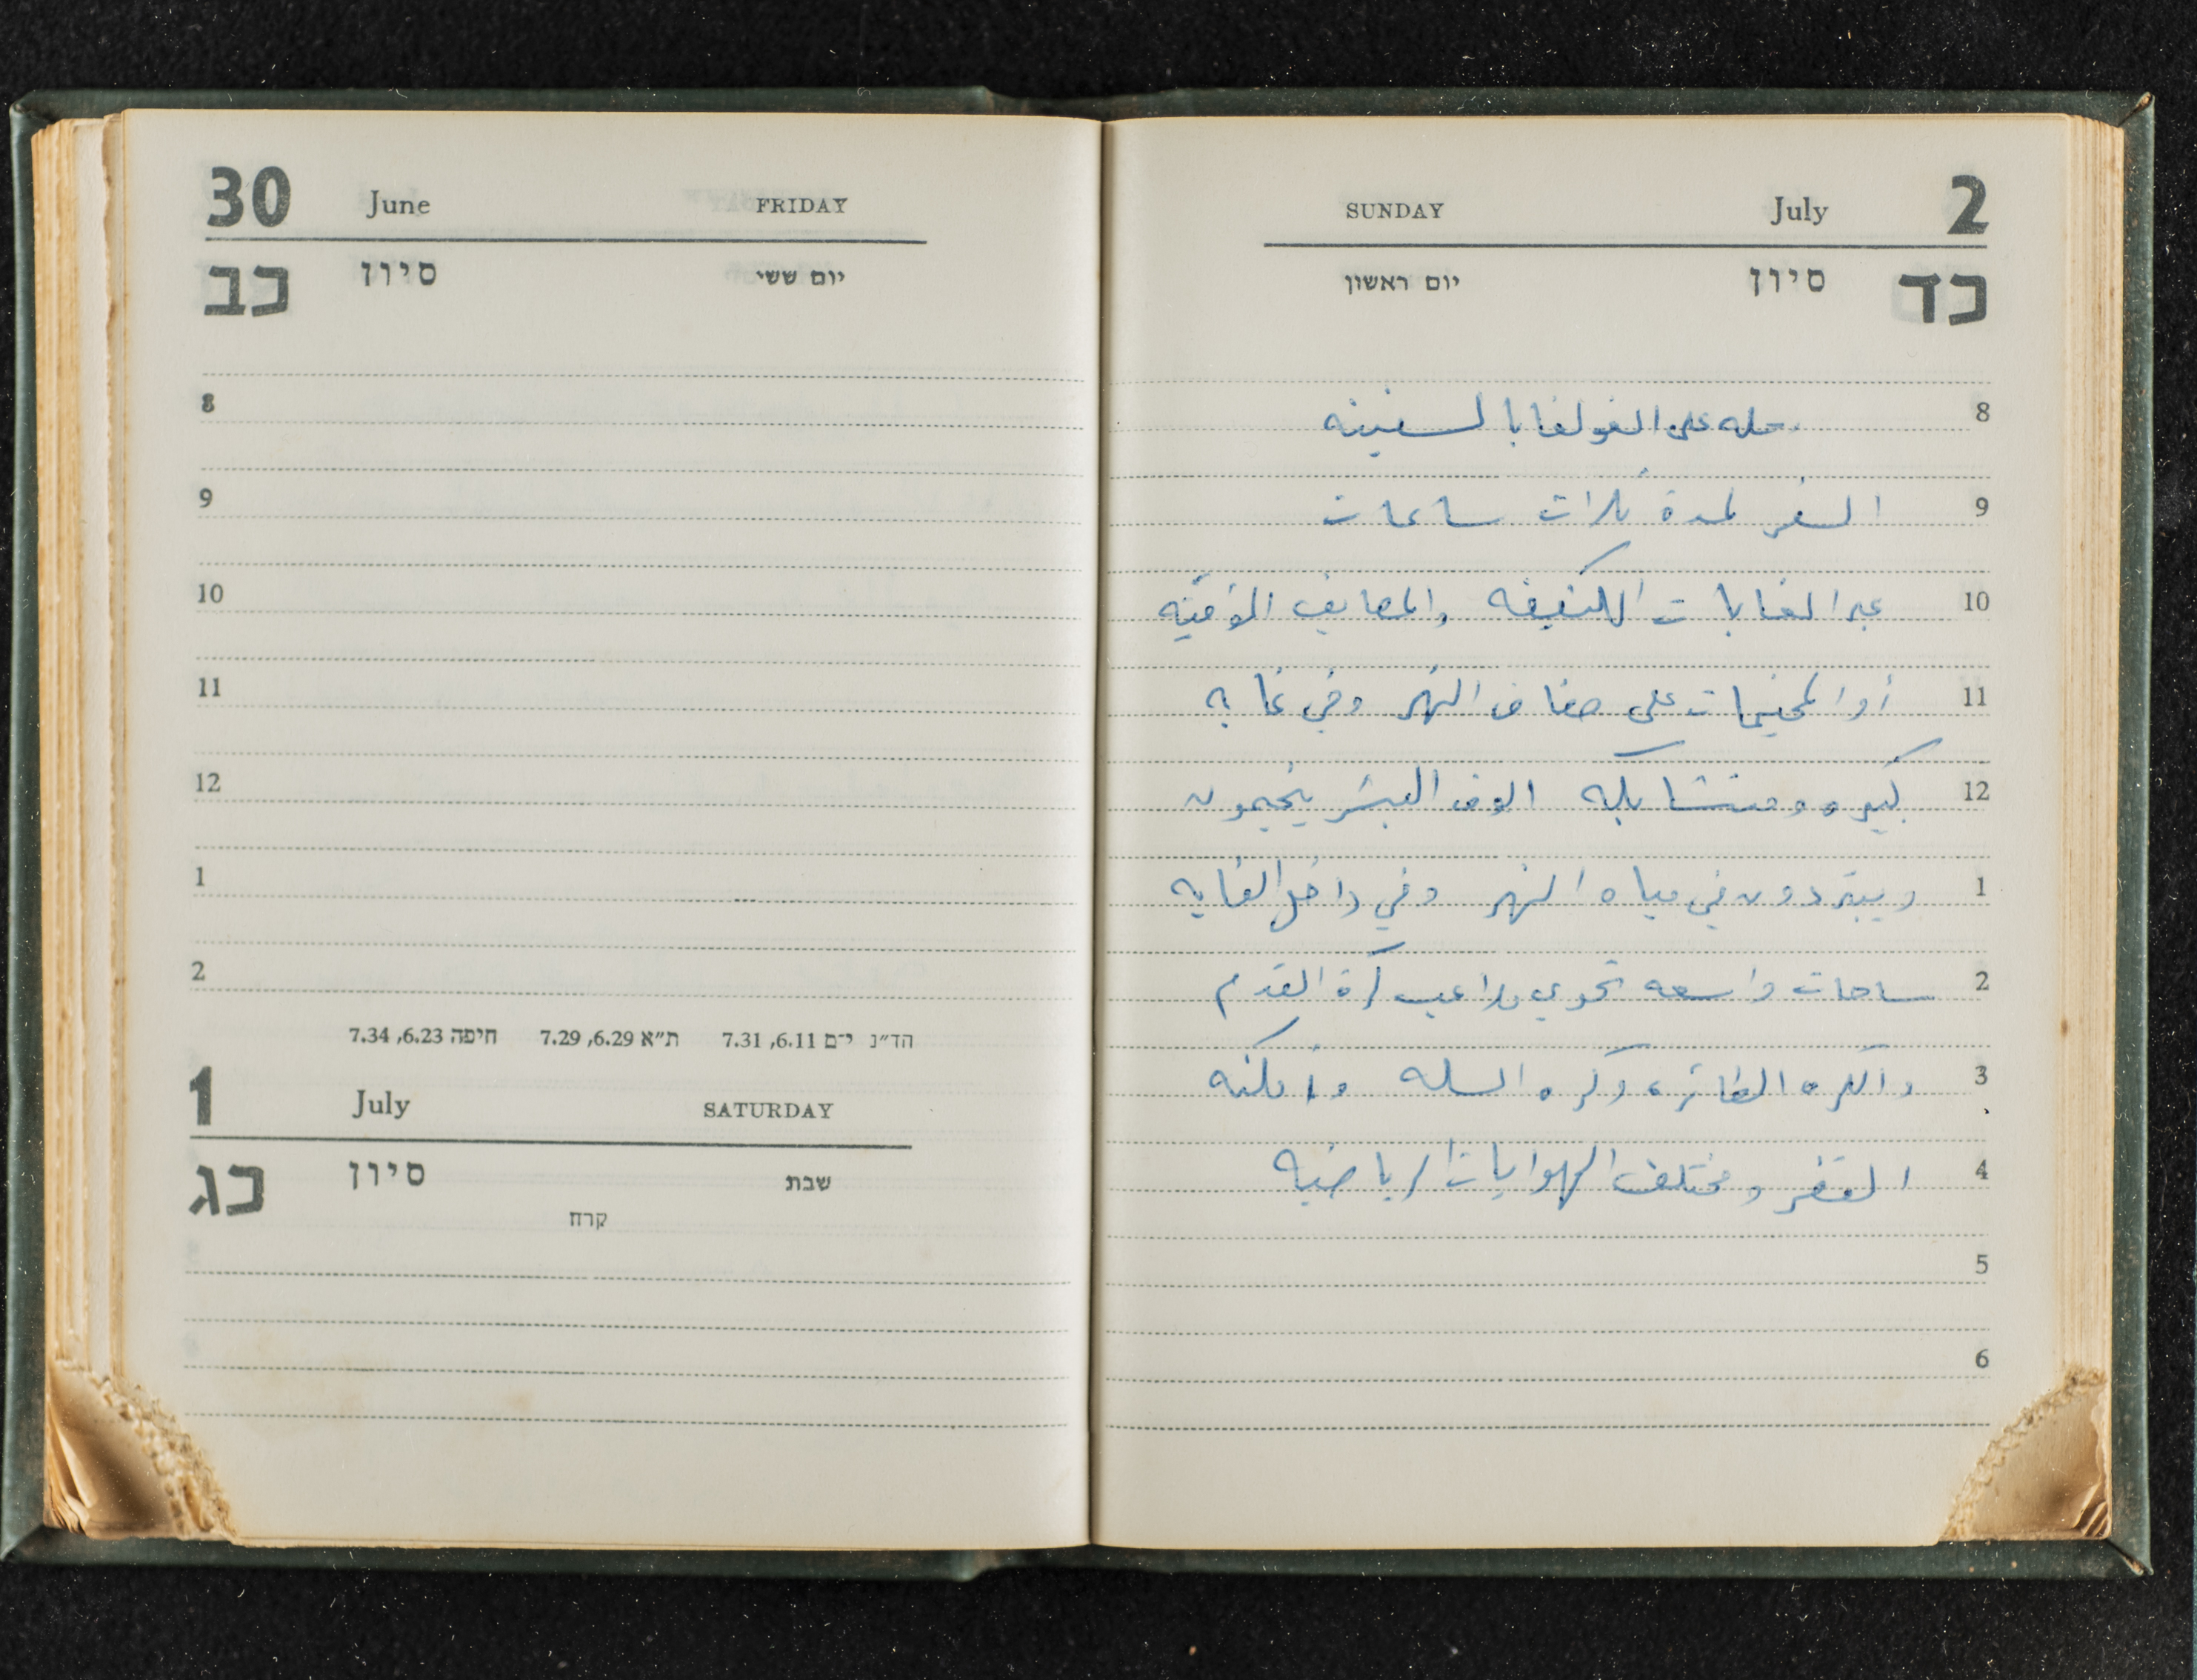 30 June FRIDAY
כב סיון יום ששי
8
9
10
11
12
1
2
הד״נ י־ם 6.11, 7.31 ת״א 6.29, 7.29 חיפה 6.23, 7.34
1 July SATURDAY
כג סיון שבת
קרח
SUNDAY July 2
כד סיון יום ראשון
8 رحله على الفولغا بالسفينه
9 السفر لمدة ثلاث ساعات
10 عبر الغابات الكثيفه والمصايف المؤقته
11 أو المخيمات على ضفاف النهر وفي غابه
12 كبيره ومتشابكه الوف البشر يخيمون
1 ويبتردون في مياه النهر وفي داخل الغابه
2 ساحات واسعه تحوي ملاعب كرة القدم
3 والكره الطائره وكره السله وأمكنه
4 القفز ومختلف الهوايات الرياضيه
5
6